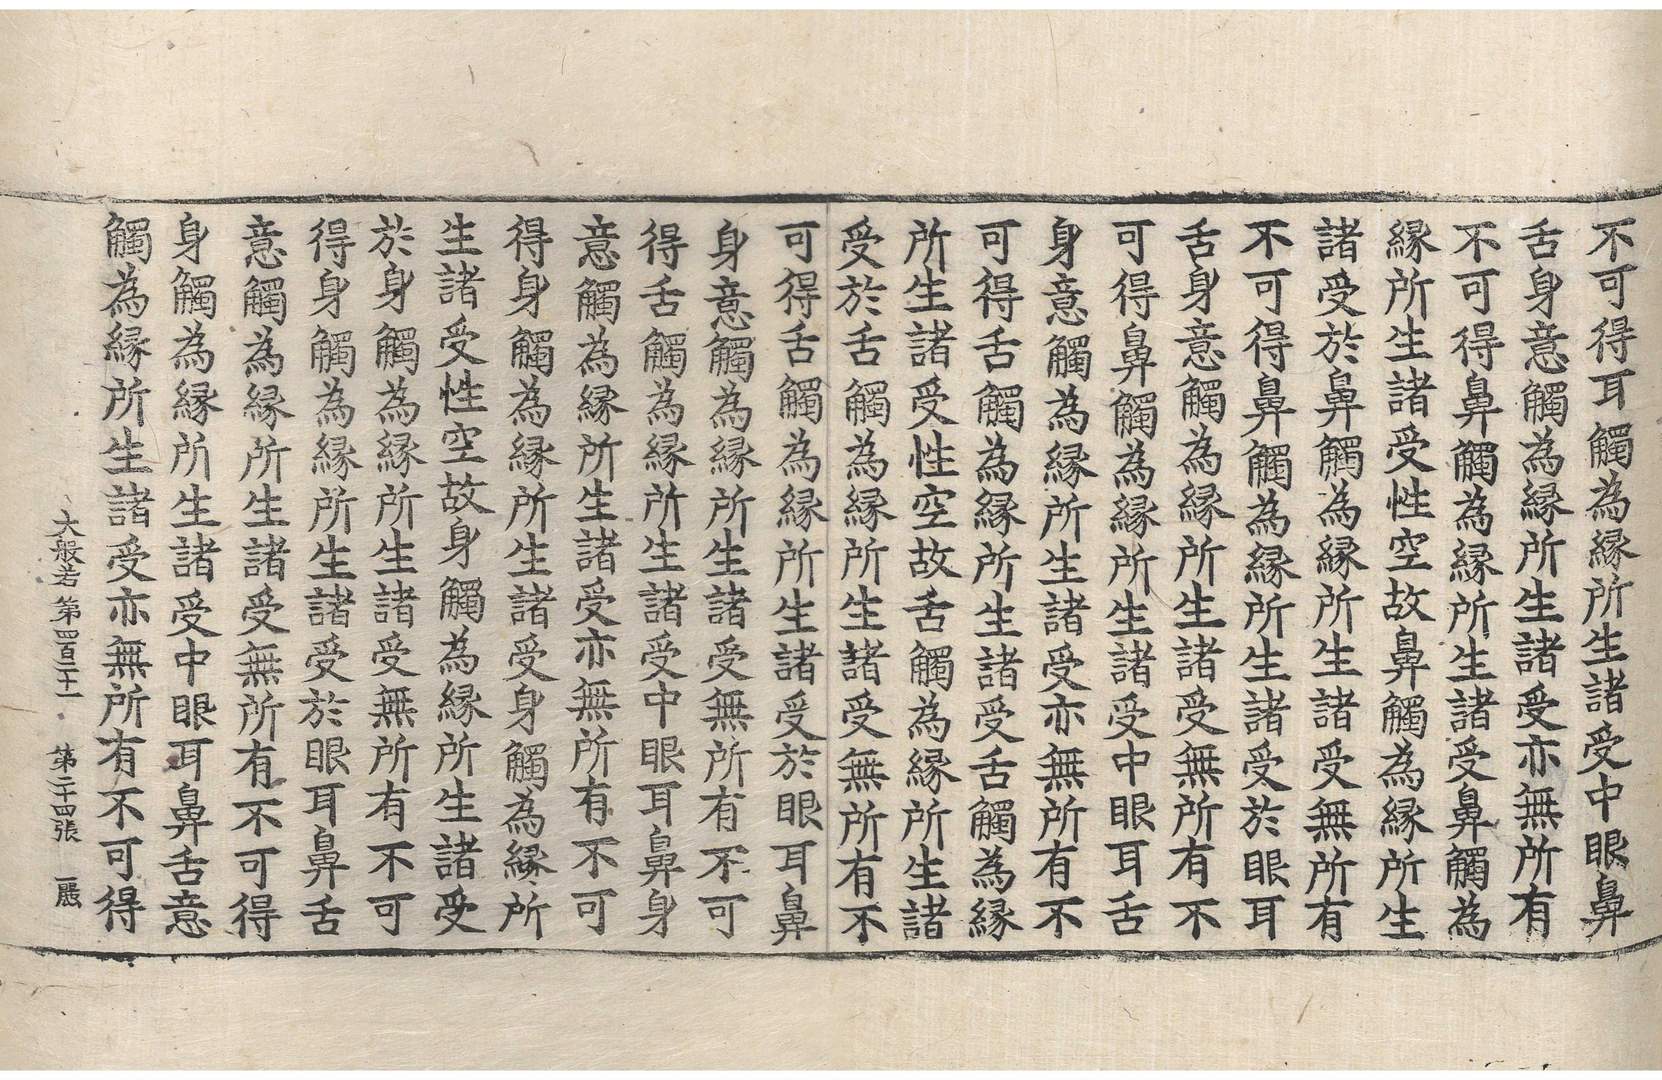 不可得耳觸為縁所生諸受中眼鼻
舌身意觸為縁所生諸受亦無所有
不可得鼻觸為縁所生諸受鼻觸為
縁所生諸受性空故鼻觸為縁所生
諸受於鼻觸為縁所生諸受無所有
不可得鼻觸為縁所生諸受於眼耳
舌身意觸為縁所生諸受無所有不
可得鼻觸為縁所生諸受中眼耳舌
身意觸為縁所生諸受亦無所有不
可得舌觸為縁所生諸受舌觸為縁
所生諸受性空故舌觸為縁所生諸
受於舌觸為縁所生諸受無所有不
可得舌觸為縁所生諸受於眼耳鼻
身意觸為縁所生諸受無所有不可
得舌觸為縁所生諸受中眼耳鼻身
意觸為縁所生諸受亦無所有不可
得身觸為縁所生諸受身觸為縁所
生諸受性空故身觸為縁所生諸受
於身觸為縁所生諸受無所有不可
得身觸為縁所生諸受於眼耳鼻舌
意觸為縁所生諸受無所有不可得
身觸為縁所生諸受中眼耳鼻舌意
觸為縁所生諸受亦無所有不可得
大般若第四百二十一 第二十四張